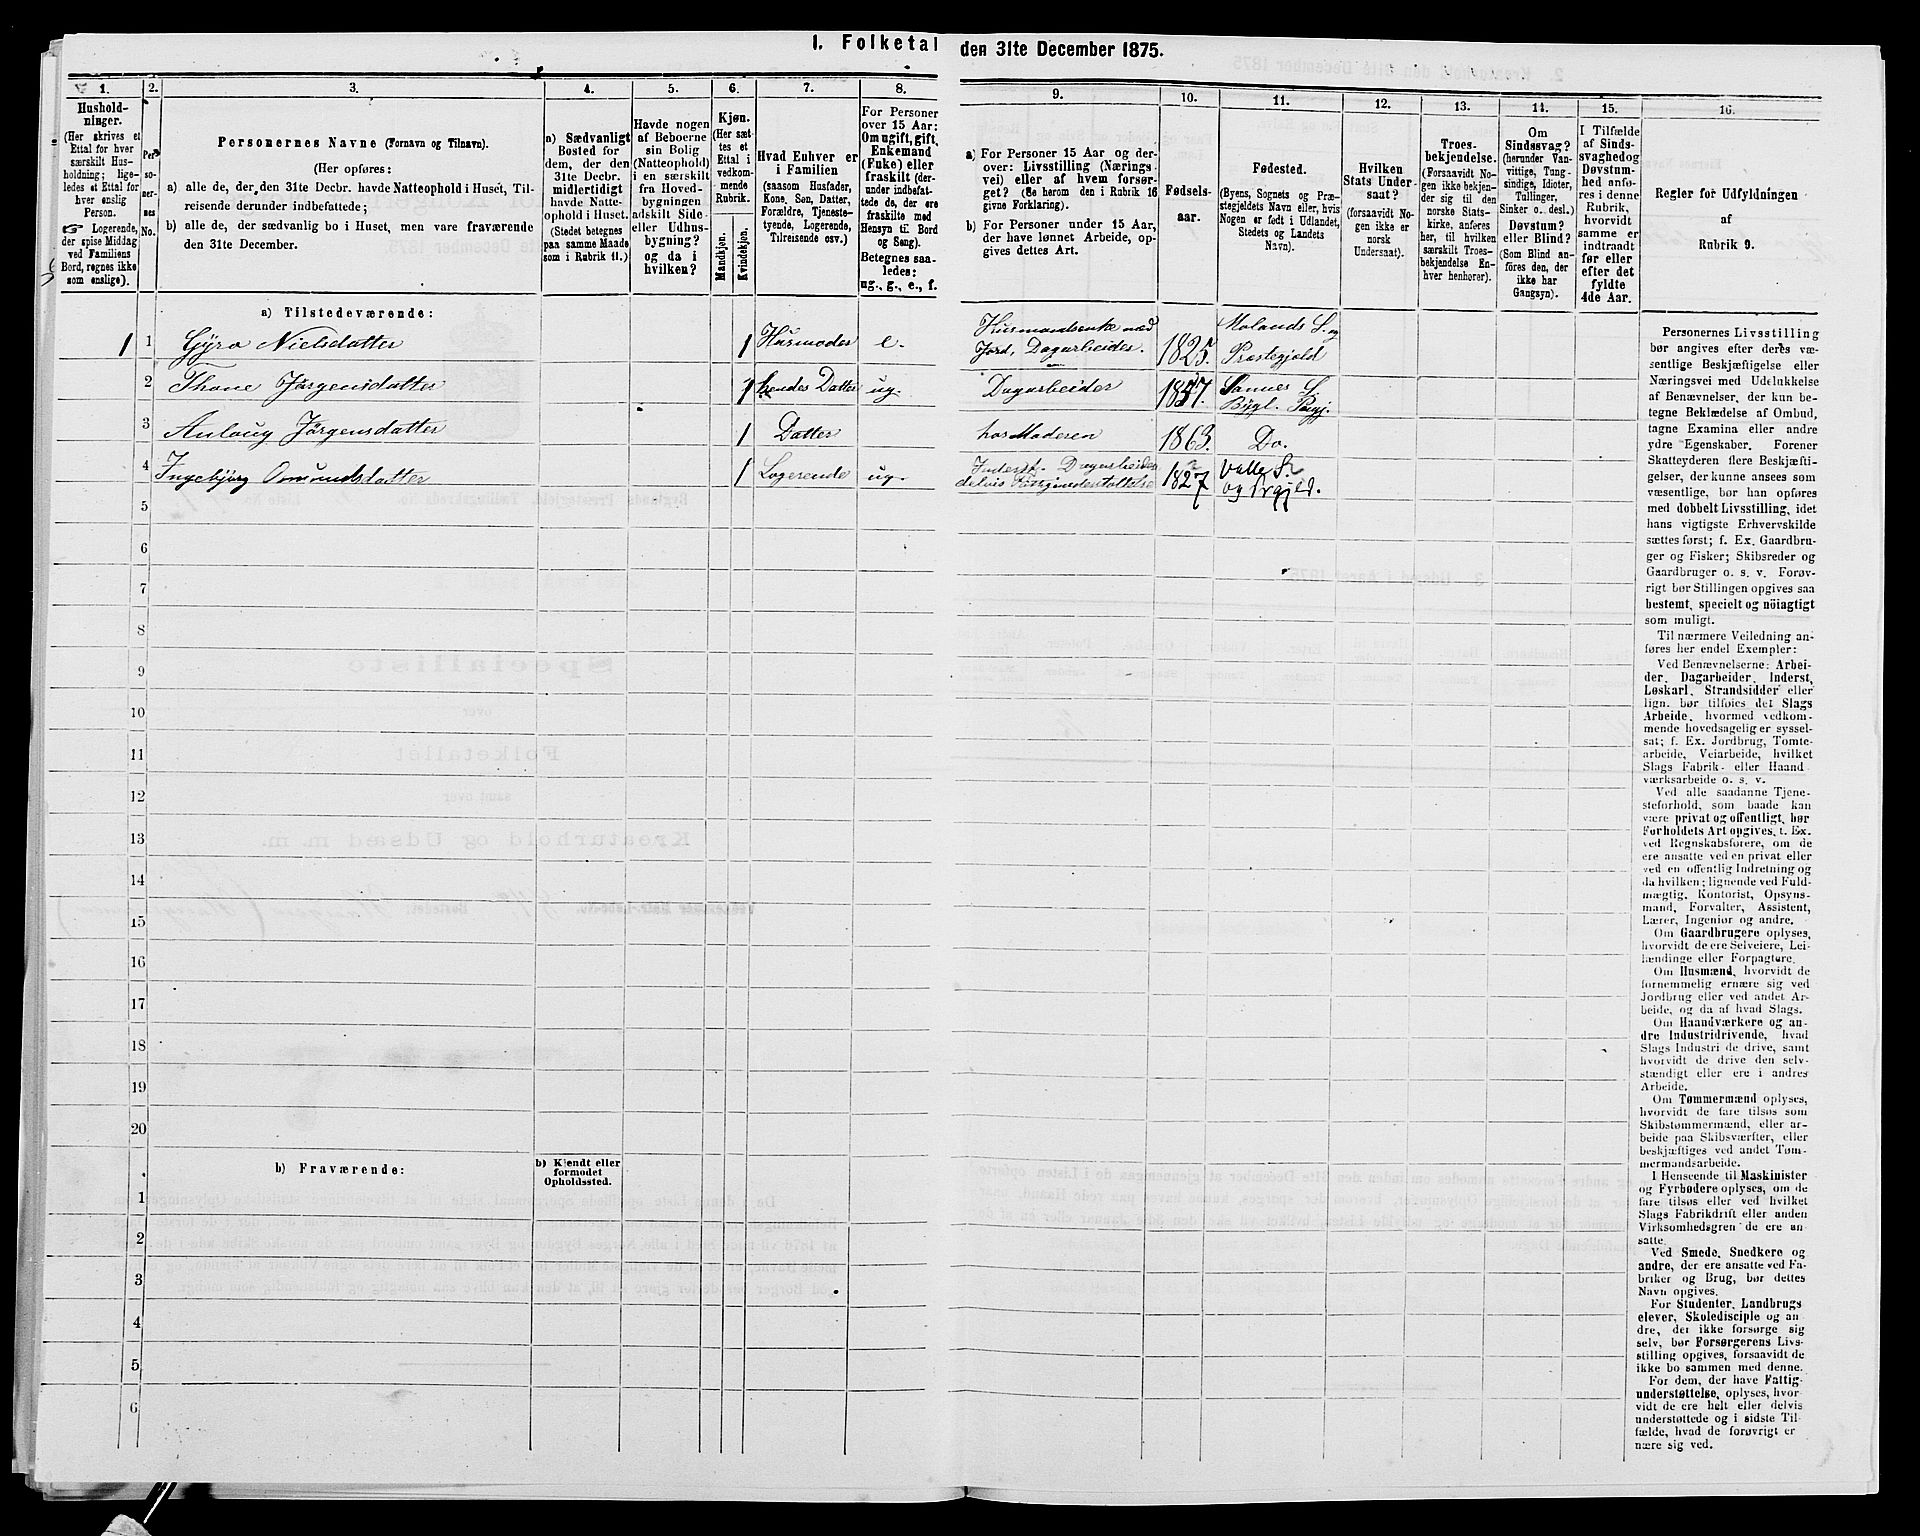 1. Folketal den 31te December 1875.
1.
Hushold-
ninger.
(Her skrives et
Ettal for hver
særskilt Hus-
holdning; lige-
ledes et Ettal for
hver enslig
Person.
☞ Logerende,
der spise Middag
ved Familiens
Bord, regnes ikke
som enslige).
2.
Per-
so-
ner-
nes
No.
3.
Personernes Navne (Fornavn og Tilnavn).
(Her opføres:
a) alle de, der den 31te Decbr. havde Natteophold i Huset, Til-
reisende derunder indbefattede;
b) alle de, der sædvanlig bo i Huset, men vare fraværende
den 31te December.
4.
a) Sædvanligt
Bosted for
dem, der den
31te Decbr.
midlertidigt
havde Natte-
ophold i Huset.
(Stedet betegnes
paa samme Maade
som i Rubrik 11.)
5.
Havde nogen
af Beboerne
sin Bolig
(Natteophold)
i en særskilt
fra Hoved-
bygningen
adskilt Side-
eller Udhus-
bygning?
og da i
hvilken?
6.
Kjøn.
(Her sæt-
tes et
Ettal i
vedkom-
mende
Rubrik.
Mandkjøn.
Kvindekjøn.
7.
Hvad Enhver er
i Familien
(saasom Husfader,
Kone, Søn, Datter,
Forældre, Tjeneste-
tyende, Logerende,
Tilreisende osv.)
8.
For Personer
over 15 Aar:
Om ugift, gift,
Enkemand
(Enke) eller
fraskilt (der-
under indbefat-
tede de, der ere
fraskilte med
Hensyn til Bord
og Seng).
Betegnes saa-
ledes:
ug., g., e., f.
9.
a) For Personer 15 Aar og der-
over: Livsstilling (Nærings-
vei) eller af hvem forsør-
get? (Se herom den i Rubrik 16
givne Forklaring).
b) For Personer under 15 Aar,
der have lønnet Arbeide, op-
gives dettes Art.
10.
Fødsels-
aar.
11.
Fødested.
(Byens, Sognets og Præ-
stegjeldets Navn eller, hvis
Nogen er født i Udlandet,
Stedets og Landets
Navn).
12.
Hvilken
Stats Under-
saat?
(forsaavidt No-
gen ikke er
norsk
Undersaat).
13.
Troes-
bekjendelse.
(Forsaavidt No-
gen ikke bekjen-
der sig til den
norske Stats-
kirke, anføres
her, til hvilken
særskilt Troes-
bekjendelse En-
hver henhører).
14.
Om
Sindssvag?
(herunder Van-
vittige, Tung-
sindige, Idioter,
Tullinger,
Sinker o. desl.)
Døvstum?
eller Blind?
(Som Blind an-
føres den, der
ikke har
Gangsyn).
15.
I Tilfælde
af Sinds-
svaghed og
Døvstum-
hed anfø-
res i denne
Rubrik,
hvorvidt
samme er
indtraadt
før eller
efter det
fyldte
4de Aar.
16.
Regler for Udfyldningen
af
Rubrik 9.
a) Tilstedeværende:
1 1 Gyro Nielsdatter 1 Husmoder e. Husmandsenke med Jord, Dagarbeider. 1825. Molands S. og Præstegjeld
2 Thone Jørgensdatter 1 hendes Datter ug. Dagarbeider 1857. Sannes S. Bygl. Prgj.
3 Anlaug Jørgensdatter 1 Datter hos Moderen 1863. Do.
4 Ingebjørg Osmundsdatter 1 Logerende ug. Inderst. Dagarbeider delvis Fattigunderstøttelse 1827 Valle S. og Prgjld.
5
6
7
8
9
10
11
12
13
14
15
16
17
18
19
20
b) Fraværende:
b) Kjendt eller
formodet
Opholdssted.
1
2
3
4
5
6
Personernes Livsstilling
bør angives efter deres væ-
sentlige Beskjæftigelse eller
Næringsvei med Udelukkelse
af Benævnelser, der kun be-
tegne Beklædelse af Ombud,
tagne Examina eller andre
ydre Egenskaber. Forener
Skatteyderen flere Beskjæfti-
gelser, der kunne ansees som
væsentlige, bør han opføres
med dobbelt Livsstilling, idet
hans vigtigste Erhvervskilde
sættes først; f. Ex. Gaardbru-
ger og Fisker; Skibsreder og
Gaardbruger o. s. v. Forøv-
rigt bør Stillingen opgives saa
bestemt, specielt og nöiagtigt
som muligt.
Til nærmere Veiledning an-
føres her endel Exempler:
Ved Benævnelserne: Arbei-
der, Dagarbeider, Inderst,
Løskarl, Strandsidder eller
lign. bør tilføies det Slags
Arbeide, hvormed vedkom-
mende hovedsagelig er syssel-
sat; f. Ex. Jordbrug, Tomte-
arbeide, Veiarbeide, hvilket
Slags Fabrik- eller Haand
værksarbeide o. s. v.
Ved alle saadanne Tjene-
steforhold, som baade kan
være privat og offentligt, bør
Forholdets Art opgives, t. Ex.
ved Regnskabsførere, om de
ere ansatte ved en privat eller
ved en offentlig Indretning og
da hvilken; lignende ved Fuld-
mægtig, Kontorist, Opsyns-
mand, Forvalter, Assistent,
Lærer, Ingeniør og andre.
Om Gaardbrugere oplyses,
hvorvidt de ere Selveiere, Lei-
lændinge eller Forpagtere.
Om Husmænd, hvorvidt de
fornemmelig ernære sig ved
Jordbrug eller ved andet Ar-
beide, og da af hvad Slags.
Om Haandværkere og an-
dre Industridrivende, hvad
Slags Industri de drive, samt
hvorvidt de drive den selv-
stændigt eller ere i andres
Arbeide.
Om Tømmermænd oplyses,
hvorvidt de fare tilsøs som
Skibstømmermænd, eller ar-
beide paa Skibsværfter, eller
beskjæftiges ved andet Tøm-
mermandsarbeide.
I Henseende til Maskinister
og Fyrbødere oplyses, om de
fare tilsøs eller ved hvilket
Slags Fabrikdrift eller anden
Virksomhedsgren de ere an-
satte.
Ved Smede, Snedkere og
andre, der ere ansatte ved Fa-
briker og Brug, bør dettes
Navn opgives.
For Studenter, Landbrugs
elever, Skoledisciple og an
dre, der ikke forsørge sig
selv, bør Forsørgerens Livs-
stilling opgives, forsaavidt de
ikke bo sammen med denne.
For dem, der have Fattig-
understøttelse, oplyses, hvor-
vidt de ere helt eller delvis
understøttede og i sidste Til-
fælde, hvad de forøvrigt er
nære sig ved.